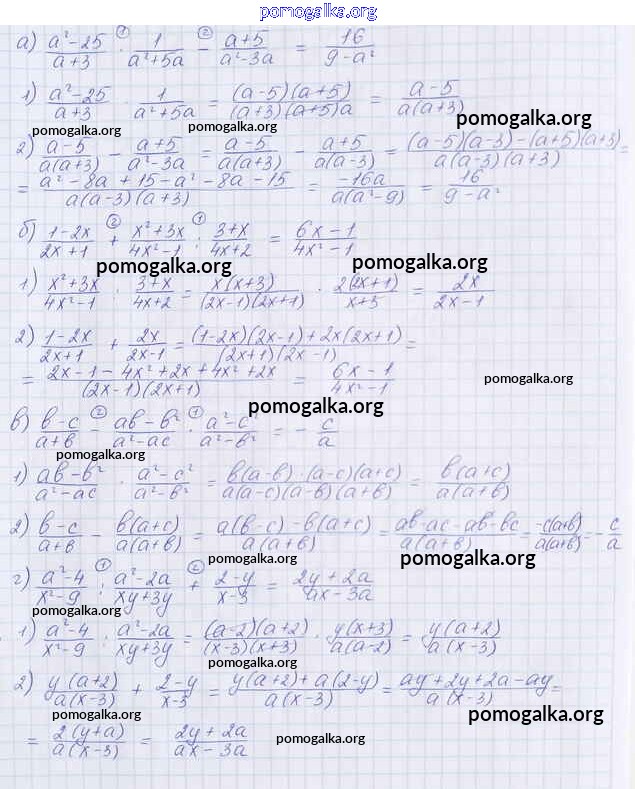 pomogalka.org
а) (a²-25)/(a+3) · 1/(a²+5a) - (a+5)/(a²-3a) = 16/(9-a²)
1) (a²-25)/(a+3) · 1/(a²+5a) = (a-5)(a+5)/((a+3)(a+5)a) = (a-5)/(a(a+3))
pomogalka.org pomogalka.org pomogalka.org
2) (a-5)/(a(a+3)) - (a+5)/(a²-3a) = (a-5)/(a(a+3)) - (a+5)/(a(a-3)) = ((a-5)(a-3)-(a+5)(a+3))/(a(a-3)(a+3)) =
= (a²-8a+15-a²-8a-15)/(a(a-3)(a+3)) = -16a/(a(a²-9)) = 16/(9-a²)
б) (1-2x)/(2x+1) + (x²+3x)/(4x²-1) : (3+x)/(4x+2) = (6x-1)/(4x²-1)
pomogalka.org pomogalka.org
1) (x²+3x)/(4x²-1) : (3+x)/(4x+2) = x(x+3)/((2x-1)(2x+1)) · 2(2x+1)/(x+3) = 2x/(2x-1)
2) (1-2x)/(2x+1) + 2x/(2x-1) = ((1-2x)(2x-1)+2x(2x+1))/((2x+1)(2x-1)) =
= (2x-1-4x²+2x+4x²+2x)/((2x-1)(2x+1)) = (6x-1)/(4x²-1)
pomogalka.org
pomogalka.org
в) (b-c)/(a+b) - (ab-b²)/(a²-ac) · (a²-c²)/(a²-b²) = -c/a
pomogalka.org
1) (ab-b²)/(a²-ac) · (a²-c²)/(a²-b²) = b(a-b)·(a-c)(a+c)/(a(a-c)(a-b)(a+b)) = b(a+c)/(a(a+b))
2) (b-c)/(a+b) - b(a+c)/(a(a+b)) = (a(b-c)-b(a+c))/(a(a+b)) = (ab-ac-ab-bc)/(a(a+b)) = -c(a+b)/(a(a+b)) = -c/a
pomogalka.org pomogalka.org
г) (a²-4)/(x²-9) : (a²-2a)/(xy+3y) + (2-y)/(x-3) = (2y+2a)/(ax-3a)
pomogalka.org
1) (a²-4)/(x²-9) : (a²-2a)/(xy+3y) = (a-2)(a+2)/((x-3)(x+3)) · y(x+3)/(a(a-2)) = y(a+2)/(a(x-3))
pomogalka.org
2) y(a+2)/(a(x-3)) + (2-y)/(x-3) = (y(a+2)+a(2-y))/(a(x-3)) = (ay+2y+2a-ay)/(a(x-3)) =
pomogalka.org pomogalka.org
= 2(y+a)/(a(x-3)) = (2y+2a)/(ax-3a)
pomogalka.org